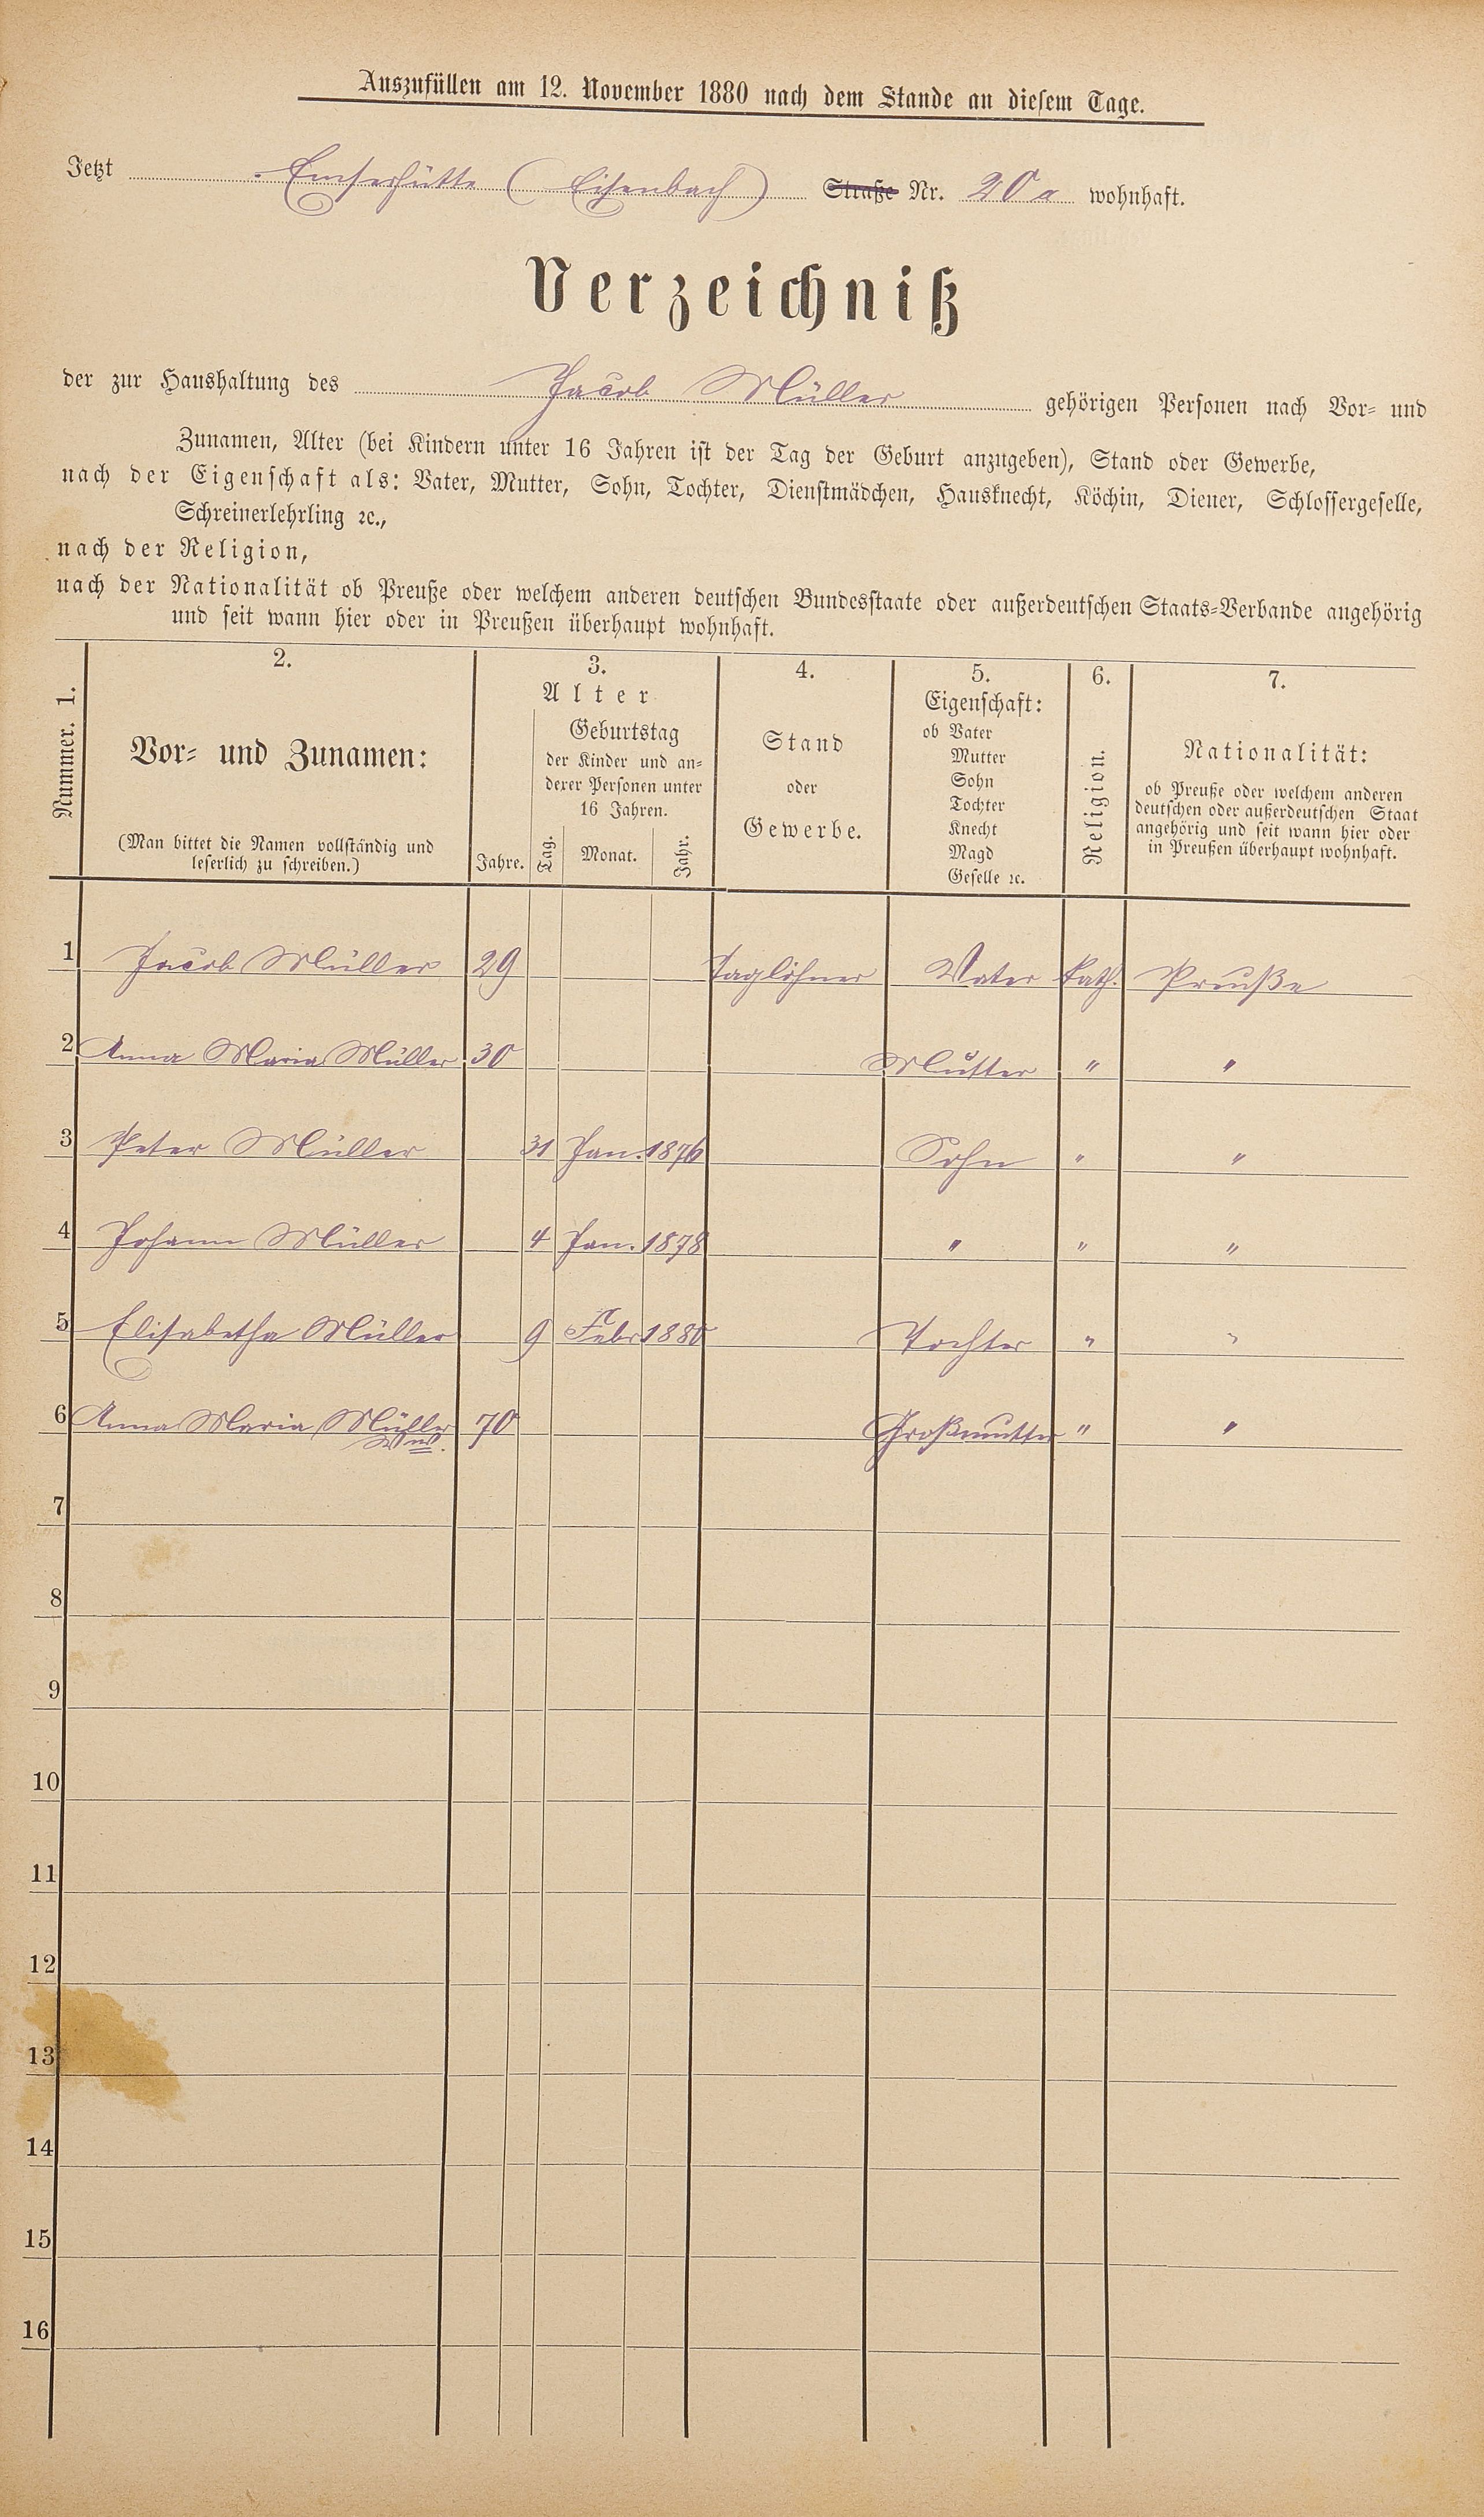 Auszufüllen am 12. November 1880 nach dem Stande an diesem Tage.
Jetzt Emserhütte (Eisenbach) Straße Nr. 20a wohnhaft.
Verzeichniß
der zur Haushaltung des Jacob Müller gehörigen Personen nach Vor- und
Zunamen, Alter (bei Kindern unter 16 Jahren ist der Tag der Geburt anzugeben), Stand oder Gewerbe,
nach der Eigenschaft als: Vater, Mutter, Sohn, Tochter, Dienstmädchen, Hausknecht, Köchin, Diener, Schlossergeselle,
Schreinerlehrling ꝛc.,
nach der Religion,
nach der Nationalität ob Preuße oder welchem anderen deutschen Bundesstaate oder außerdeutschen Staats-Verbande angehörig
und seit wann hier oder in Preußen überhaupt wohnhaft.
Nummer. 1.
2.
Vor- und Zunamen:
(Man bittet die Namen vollständig und
leserlich zu schreiben.)
3.
Alter
Jahre.
Geburtstag
der Kinder und an-
derer Personen unter
16 Jahren.
Tag. Monat. Jahr.
4.
Stand
oder
Gewerbe.
5.
Eigenschaft:
ob Vater
Mutter
Sohn
Tochter
Knecht
Magd
Geselle ꝛc.
6.
Religion.
7.
Nationalität:
ob Preuße oder welchem anderen
deutschen oder außerdeutschen Staat
angehörig und seit wann hier oder
in Preußen überhaupt wohnhaft.
1 Jacob Müller 29 Taglöhner Vater kath. Preuße
2 Anna Maria Müller 30 Mutter " "
3 Peter Müller 31 Jan. 1876 Sohn " "
4 Johann Müller 4 Jan. 1878 " " "
5 Elisabetha Müller 9 Febr 1880 Tochter " "
6 Anna Maria Müller 70 Großmutter " "
Wwe.
7
8
9
10
11
12
13
14
15
16